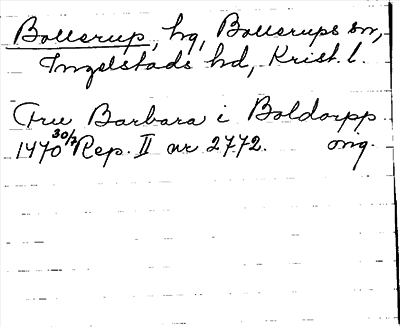 Bollerup, hg, Bollerups sn,
Ingelstads hd, Krist. l.
Fru Barbara i Boldorpp
1470 30/7 Rep. II nr 2772. ong.